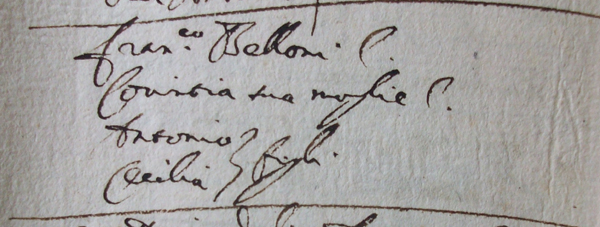 Fran.co Belloni. C.
sua moglie C.
Antonio
Cecilia } figli.